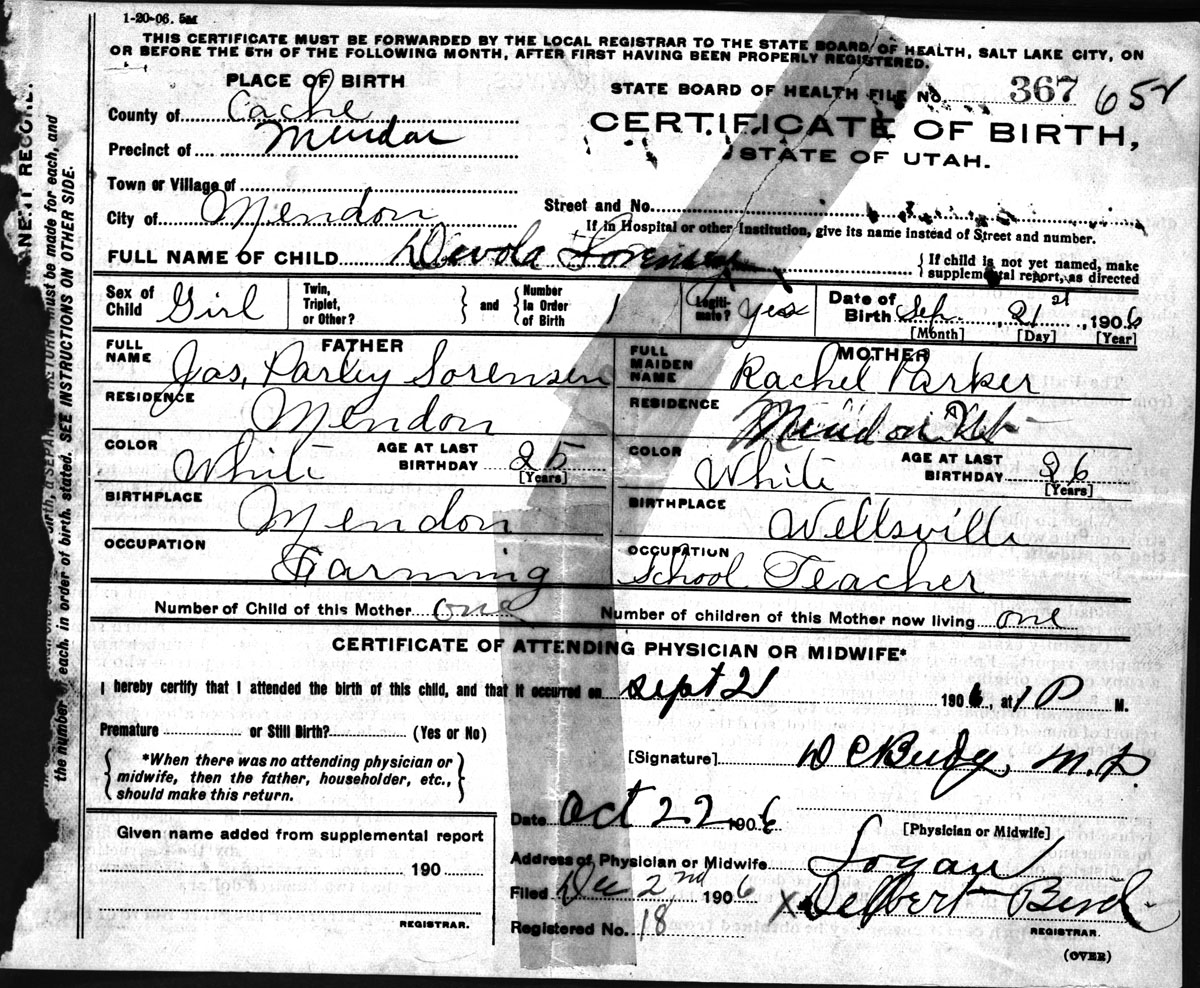 1-20-06. 5M
THIS CERTIFICATE MUST BE FORWARDED BY THE LOCAL REGISTRAR TO THE STATE BOARD OF HEALTH, SALT LAKE CITY, ON
OR BEFORE THE 5TH OF THE FOLLOWING MONTH, AFTER FIRST HAVING BEEN PROPERLY REGISTERED.
PLACE OF BIRTH
STATE BOARD OF HEALTH FILE No. 367 652
County of Cache
CERTIFICATE OF BIRTH,
Precinct of Mendon
STATE OF UTAH.
Town or Village of
City of Mendon
Street and No.
If in Hospital or other Institution, give its name instead of Street and number.
FULL NAME OF CHILD Devola Sorensen
{ If child is not yet named, make
supplemental report, as directed
Sex of Child Girl
Twin, Triplet, or Other? } and { Number in Order of Birth 1
Legitimate? Yes
Date of Birth Sep. 21st, 1906
[Month] [Day] [Year]
FATHER
FULL NAME Jas, Parley Sorensen
RESIDENCE Mendon
COLOR White AGE AT LAST BIRTHDAY 25
[Years]
BIRTHPLACE Mendon
OCCUPATION Farming
MOTHER
FULL MAIDEN NAME Rachel Parker
RESIDENCE Mendon Ut
COLOR White AGE AT LAST BIRTHDAY 26
[Years]
BIRTHPLACE Wellsvill
OCCUPATION School Teacher
Number of Child of this Mother one Number of children of this Mother now living one
CERTIFICATE OF ATTENDING PHYSICIAN OR MIDWIFE*
I hereby certify that I attended the birth of this child, and that it occurred on Sept 21 1906, at 1 P M.
Premature or Still Birth? (Yes or No)
{ *When there was no attending physician or
midwife, then the father, householder, etc.,
should make this return. }
[Signature] D C Budge, M.D
Date Oct 22 1906
[Physician or Midwife]
Given name added from supplemental report
190
REGISTRAR.
Address of Physician or Midwife Logan
Filed Dec 2nd 1906 X Delbert Bird
REGISTRAR.
Registered No. 18
(OVER)
ANENT RECORD.
RETURN must be made for each, and
the number of each, in order of birth, stated. SEE INSTRUCTIONS ON OTHER SIDE.